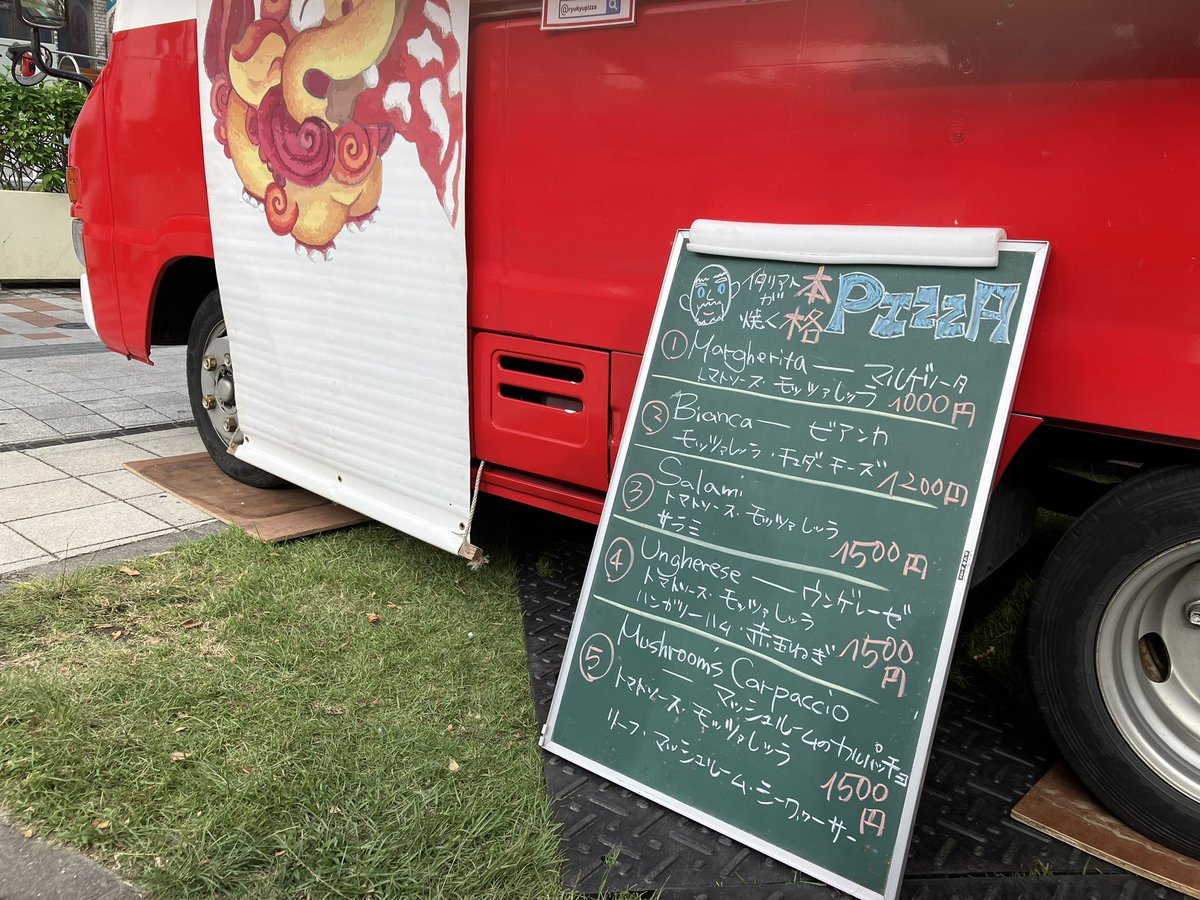 @ryukyupizza
イタリアト
が
焼く
本
格
PIZZA
① Margherita — マルゲリータ
トマトソース・モッツァレッラ 1000円
② Bianca — ビアンカ
モッツァレッラ・チェダーチーズ 1200円
③ Salami
トマトソース・モッツァレッラ
サラミ 1500円
④ Ungherese — ウンゲレーゼ
トマトソース・モッツァレッラ
ハンガリーハム・赤玉ねぎ 1500
円
⑤ Mushroom's Carpaccio
— マッシュルームのカルパッチョ
トマトソース・モッツァレッラ 1500
リーフ・マッシュルーム・シークヮーサー 円